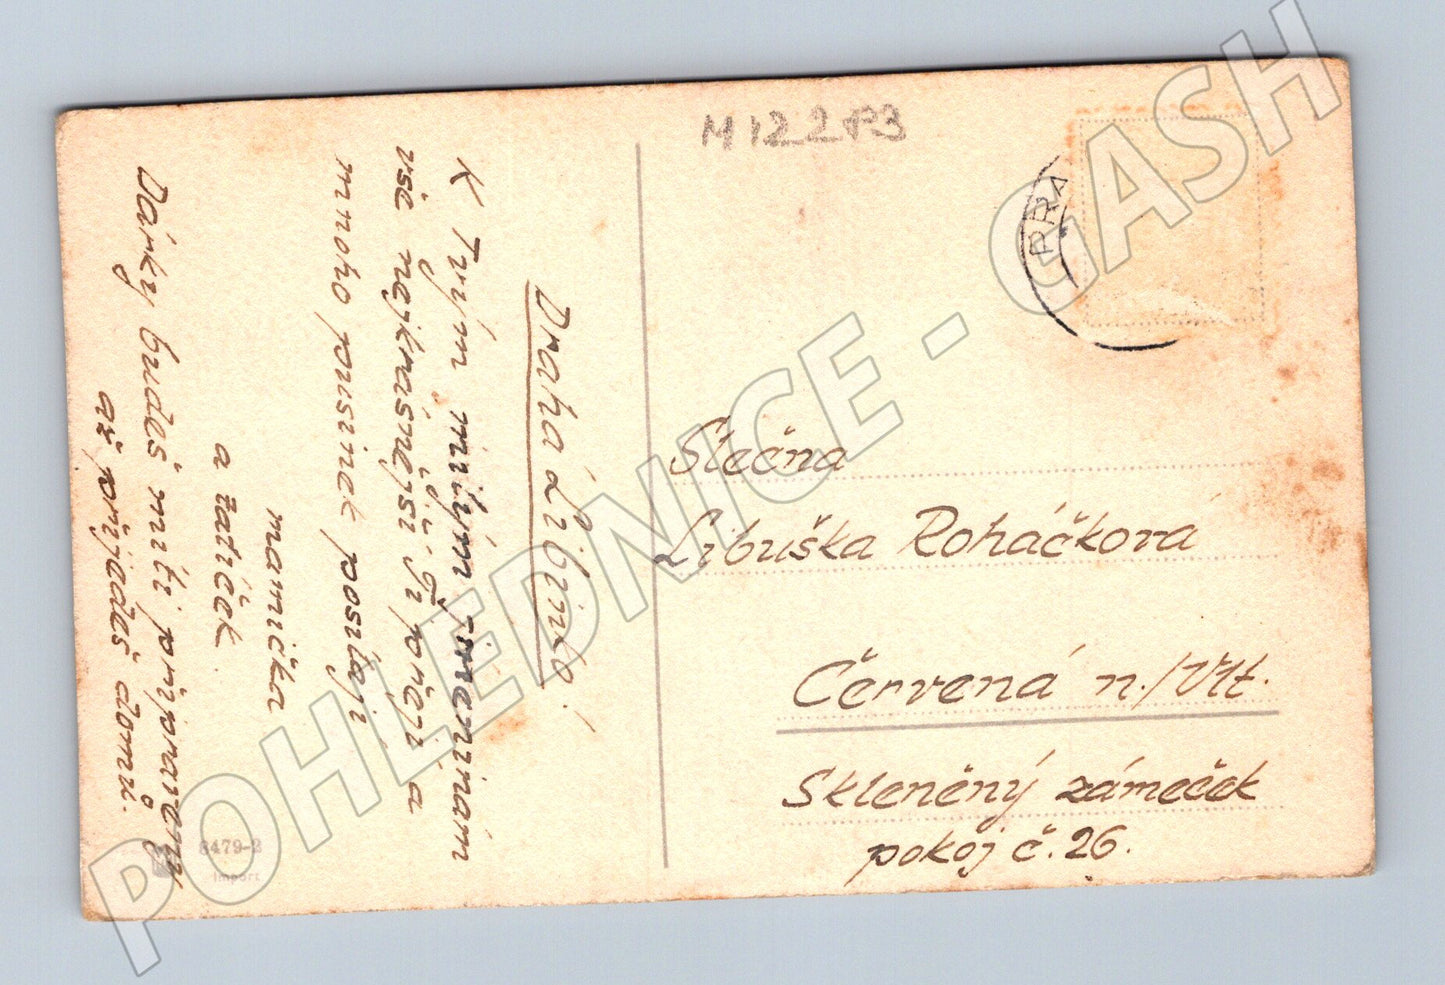 M122P3
PRA
Drahá Libinko!
K Tvým milým jmeninám
vše nejkrásnější Ti přeji a
mnoho pusinek posílají
manička
a tatíček.
Dárky budeš míti připraveny
až přijedeš domů.
Slečna
Libuška Roháčkova
Červená n./Vlt.
Skleněný zámeček
pokoj č. 26.
8479-2
Import
POHLEDNICE - GASH